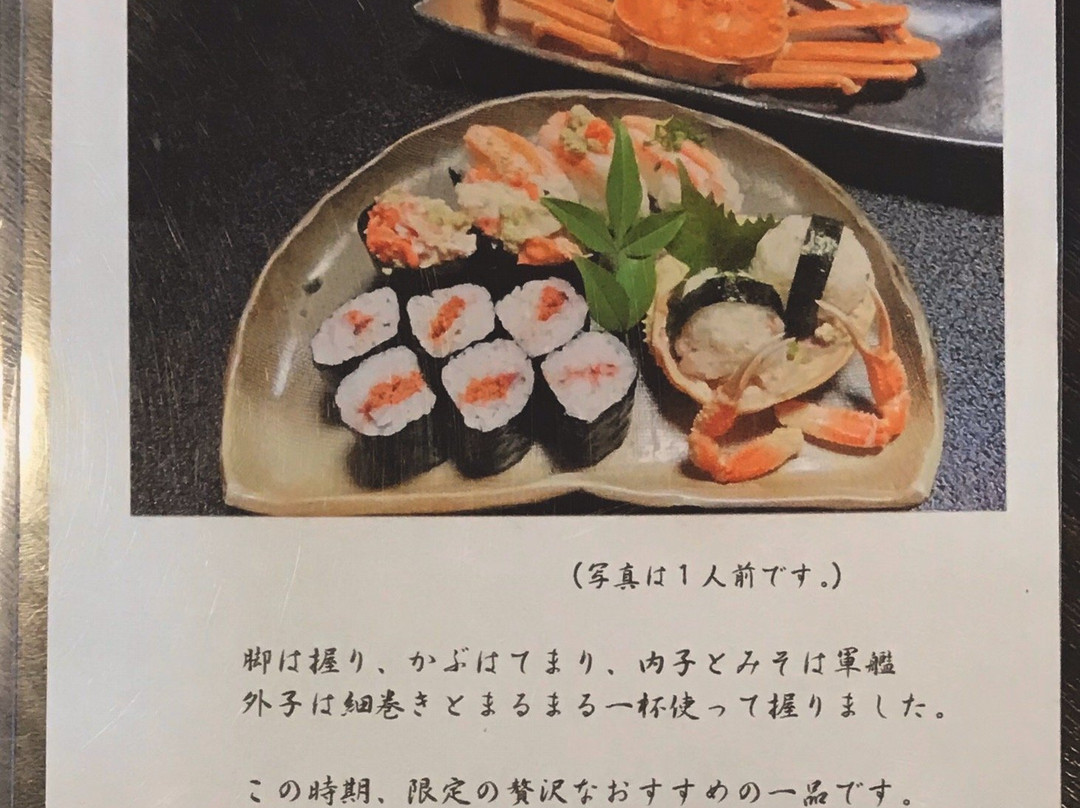 (写真は1人前です。)
脚は握り、かぶはてまり、内子とみそは軍艦
外子は細巻きとまるまる一杯使って握りました。
この時期、限定の贅沢なおすすめの一品です。